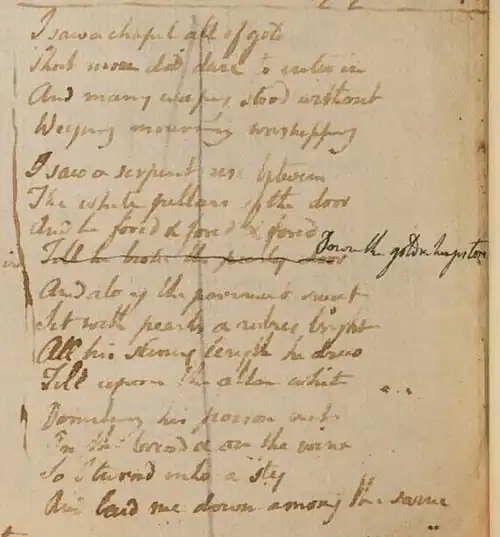 I saw a chapel all of gold
That none did dare to enter in
And many weeping stood without
Weeping mourning worshipping
I saw a serpent rise between
The white pillars of the door
And he forcd & forcd & forcd
Down the golden hinges tore
Till he broke the pearly door
And along the pavement sweet
Set with pearls & rubies bright
All his slimy length he drew
Till upon the altar white
Vomiting his poison out
On the bread & on the wine
So I turnd into a sty
And laid me down among the swine